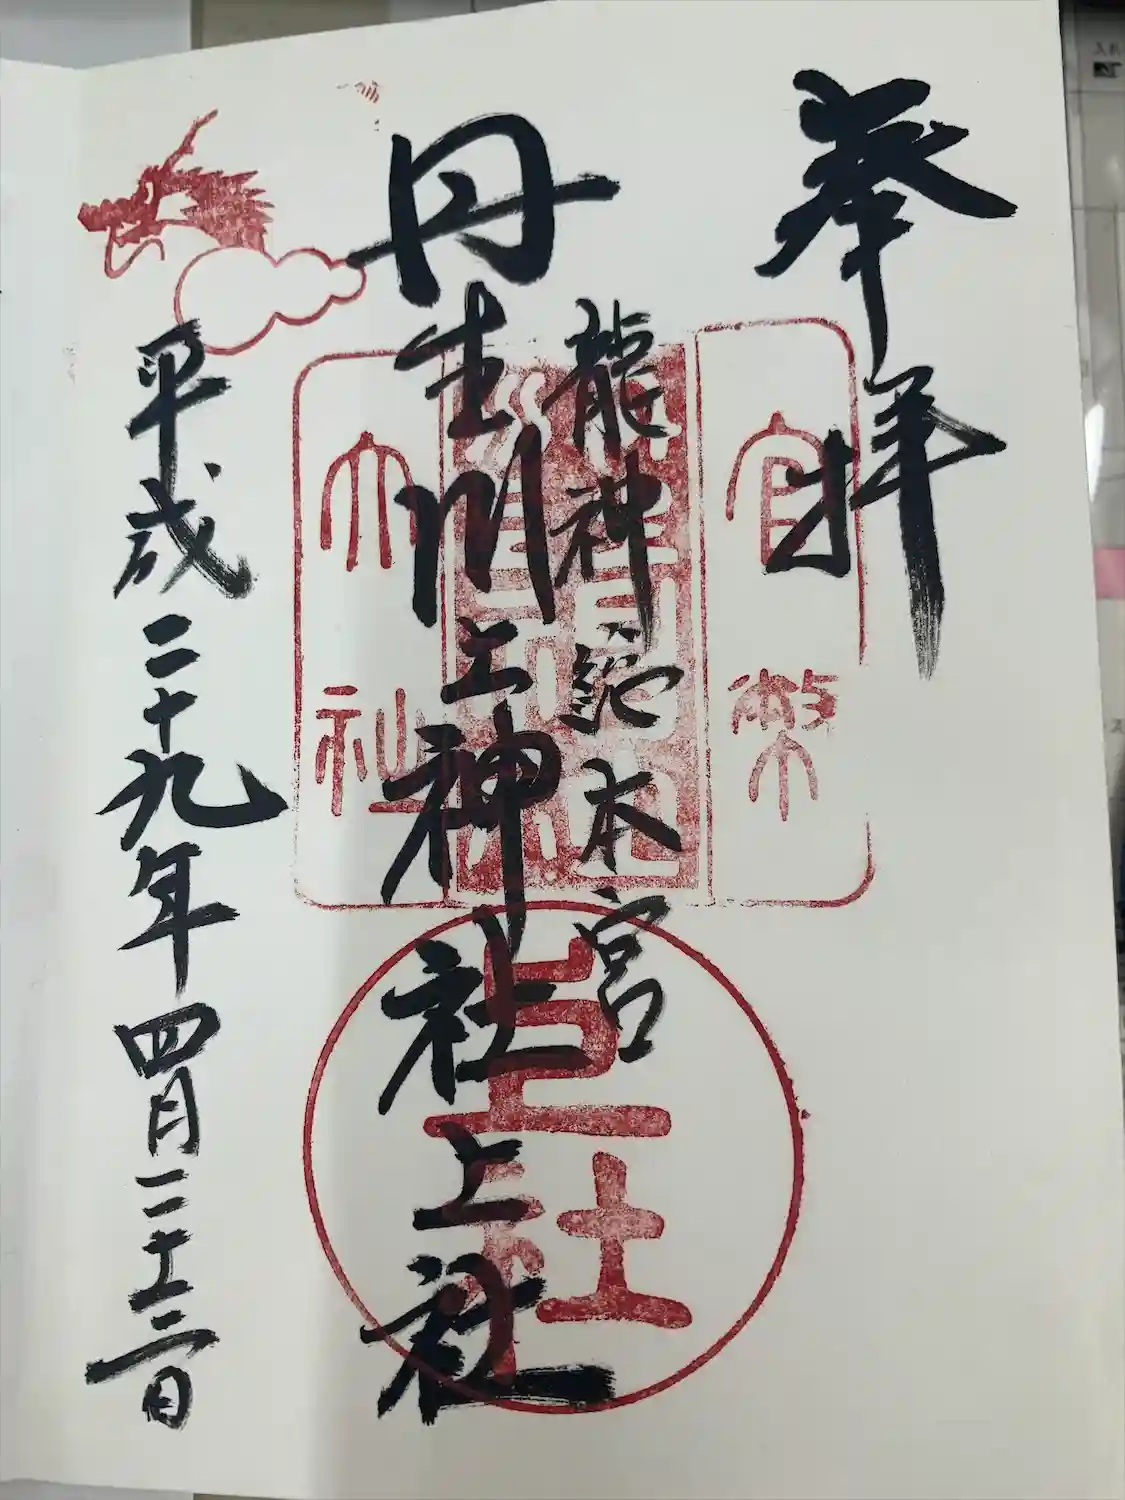 奉拝
龍神総本宮
丹生川上神社上社
平成二十九年四月二十三日
官幣
大社
上社